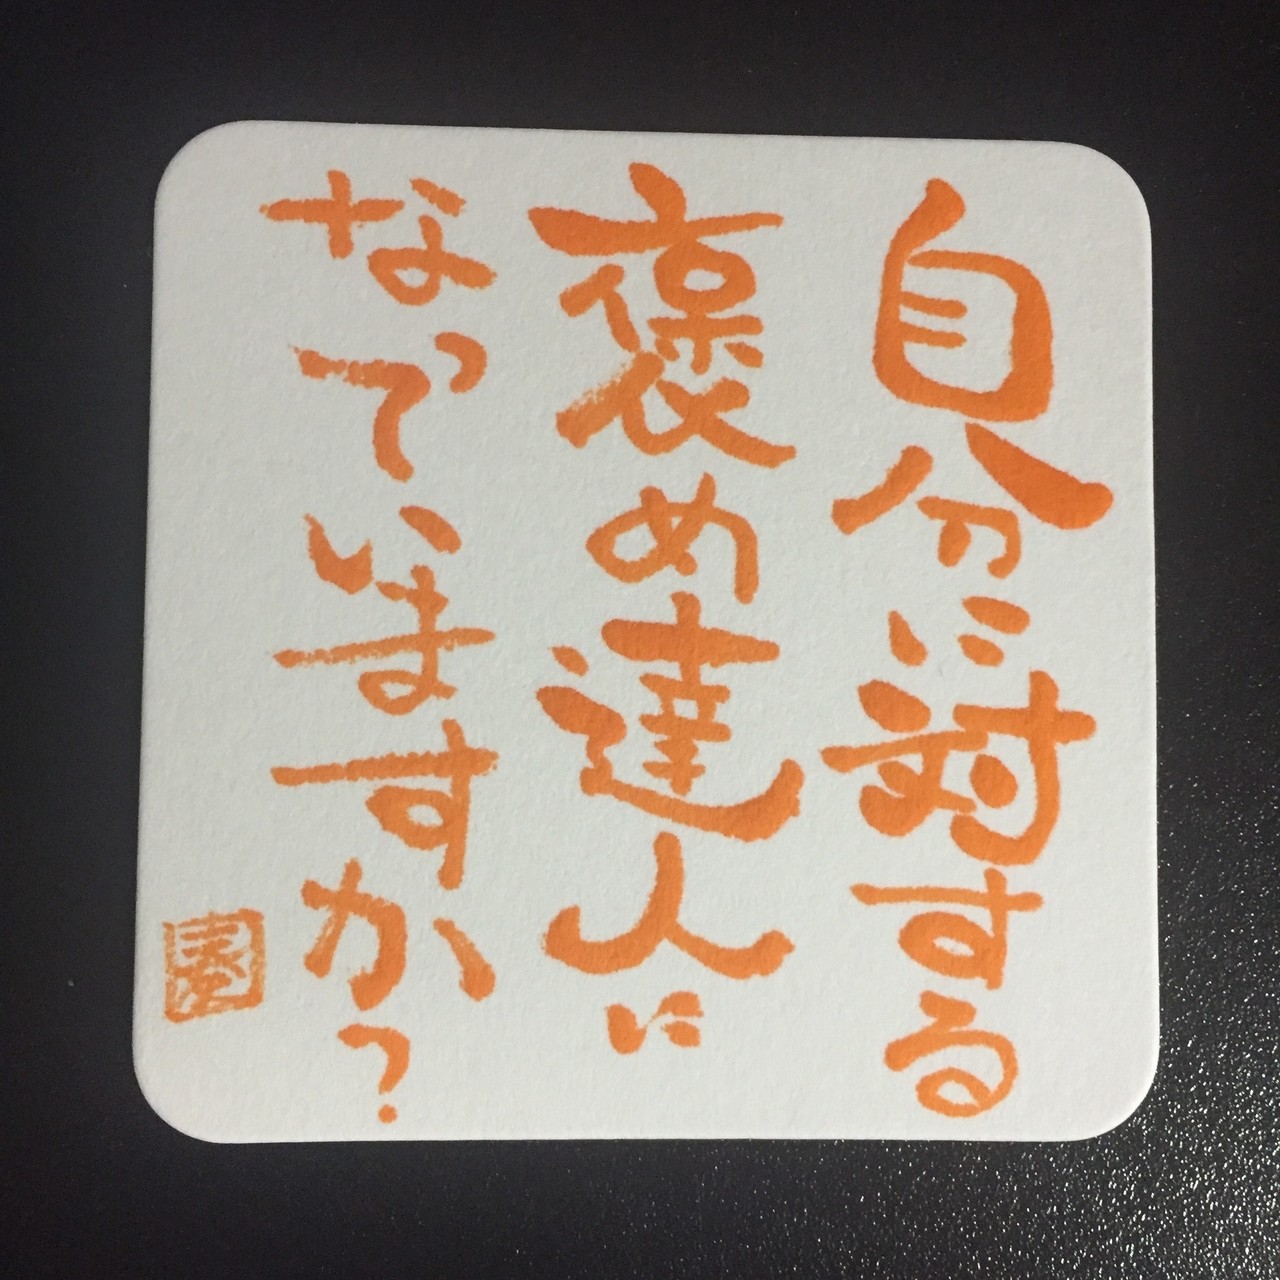 自分に対する
褒め達人に
なっていますか?